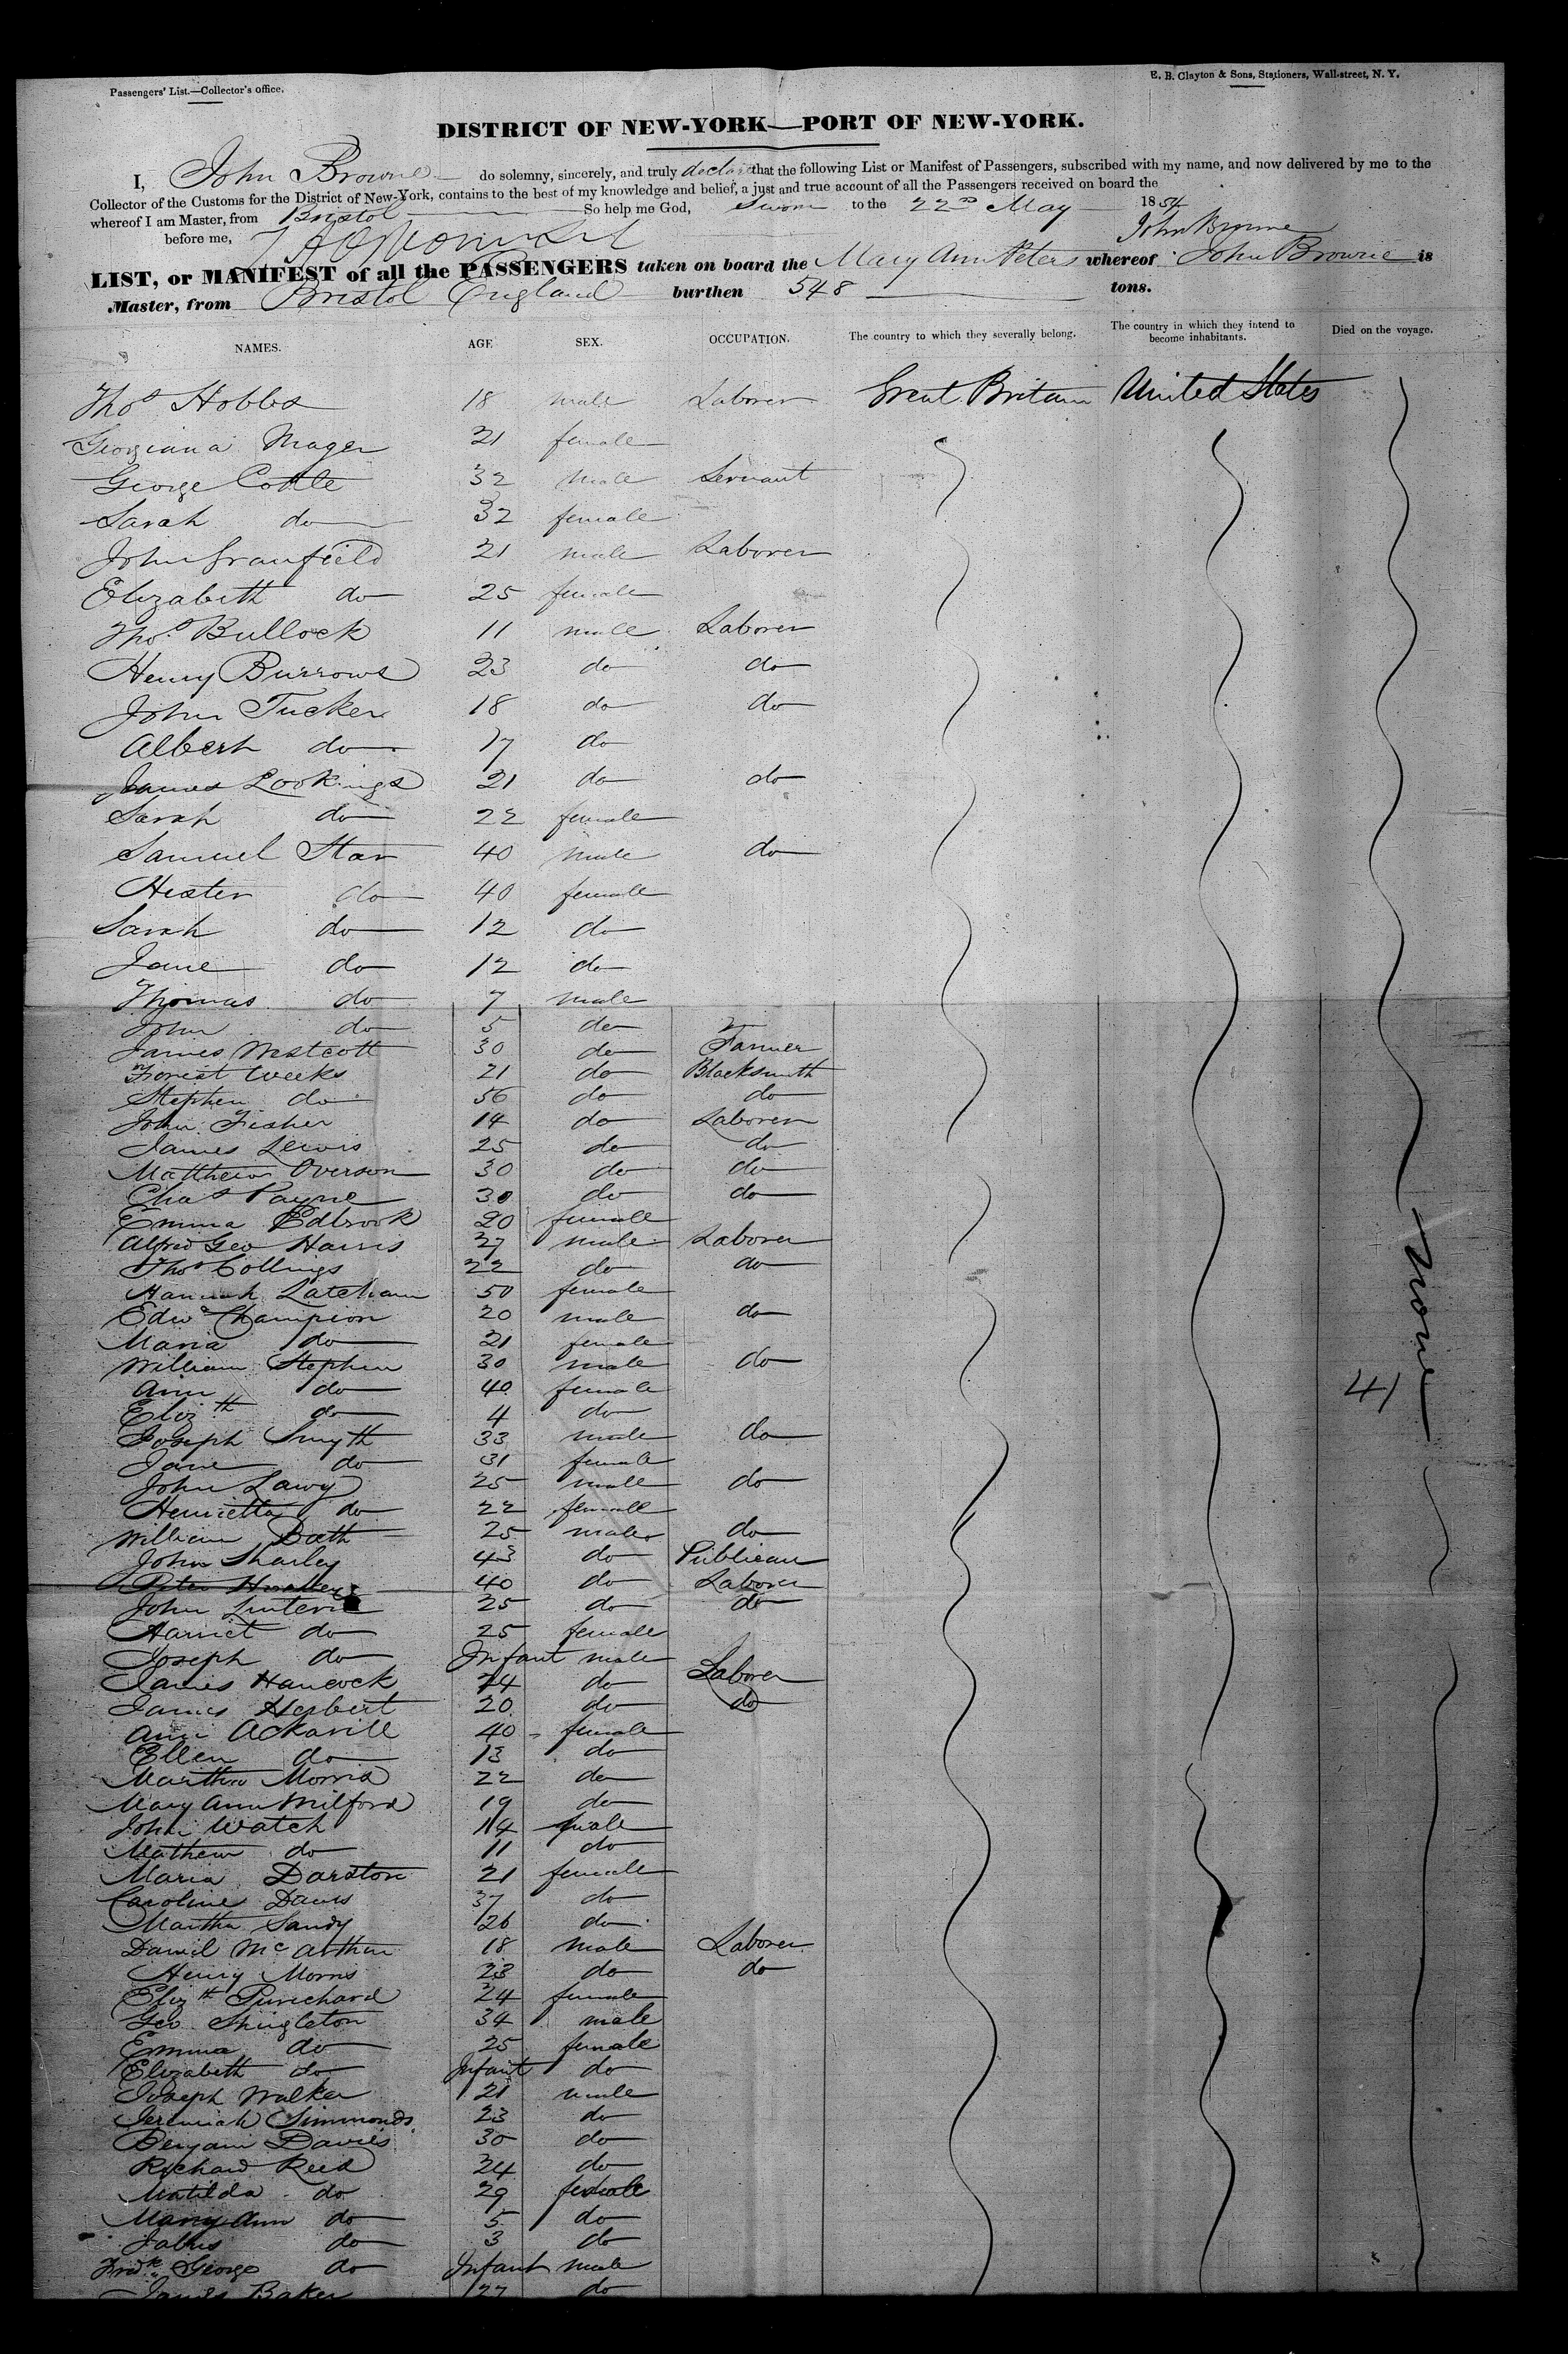 Passengers' List.—Collector's office.
E. B. Clayton & Sons, Stationers, Wall-street, N. Y.
DISTRICT OF NEW-YORK—PORT OF NEW-YORK.
I, John Browne do solemny, sincerely, and truly declare that the following List or Manifest of Passengers, subscribed with my name, and now delivered by me to the
Collector of the Customs for the District of New-York, contains to the best of my knowledge and belief, a just and true account of all the Passengers received on board the
whereof I am Master, from Bristol So help me God, Sworn to the 22nd May 1854
before me, John Browne
LIST, or MANIFEST of all the PASSENGERS taken on board the Mary Ann Peters whereof John Browne is
Master, from Bristol England burthen 548 tons.
NAMES. AGE SEX. OCCUPATION. The country to which they severally belong. The country in which they intend to become inhabitants. Died on the voyage.
Thos Hobbs 18 male Laborer Great Britain United States
Georgiana Mager 21 female
George Cottle 32 male Servant
Sarah do 32 female
John Granfield 21 male Laborer
Elizabeth do 25 female
Thos. Bullock 11 male Laborer
Henry Burrows 23 do do
John Tucker 18 do do
Albert do 17 do
James Lookings 21 do do
Sarah do 22 female
Samuel Star 40 male do
Hester do 40 female
Sarah do 12 do
Jane do 12 do
Thomas do 7 male
John do 5 do
James Westcott 30 do Farmer
Forest Weeks 21 do Blacksmith
Stephen do 56 do do
John Fisher 14 do Laborer
James Lewis 25 do do
Matthew Overson 30 do do
Chas Payne 30 do do
Emma Edbrook 20 female
Alfred Geo Harris 27 male Laborer
Thos Collings 22 do do
Hannah Latcham 50 female
Edwd Champion 20 male do
Maria do 21 female
William Stephen 30 male do
Ann do 40 female
Elizth do 4 do
Joseph Smyth 33 male do
Jane do 31 female
John Lawy 25 male do
Henrietta do 22 female
William Bath 25 male do
John Sharley 43 do Publican
Peter 40 do Laborer
John 25 do do
Harriet do 25 female
Joseph do Infant male
James Hancock 24 do Laborer
James Herbert 20 do do
Ann Ackavill 40 female
Ellen do 13 do
Martha Morris 22 do
Mary Ann Milford 19 do
John Watch 14 male
Mathew do 11 do
Maria Darston 21 female
Caroline Davis 37 do
Martha Sandy 26 do
Daniel McArthur 18 male Laborer
Henry Morris 23 do do
Elizth Purichard 24 female
Geo Shingleton 34 male
Emma do 25 female
Elizabeth do Infant do
Joseph Walker 21 male
Jeremiah Simmonds 23 do
Benjamin Davies 30 do
Richard Reed 24 do
Matilda do 29 female
Mary Ann do 5 do
Jabus do 3 do
Fredk. George do Infant male
James Baker 27 do
None
41